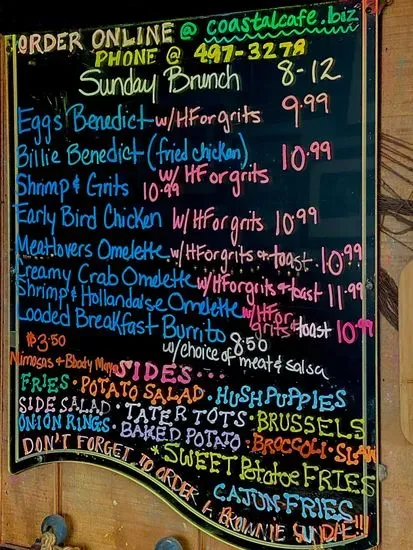 ORDER ONLINE @ coastalcafe.biz
PHONE @ 497-3278
Sunday Brunch 8-12
Eggs Benedict w/HF or grits 9.99
Billie Benedict (fried chicken) w/ HF or grits 10.99
Shrimp & Grits 10.99
Early Bird Chicken w/ HF or grits 10.99
Meatlovers Omelette w/HF or grits or toast 10.99
Creamy Crab Omelette w/HF or grits & toast 11.99
Shrimp & Hollandaise Omelette w/HF or grits & toast 10.99
Loaded Breakfast Burrito 8.50
w/choice of meat & salsa
$3.50
Mimosas & Bloody Marys
SIDES...
FRIES · POTATO SALAD · HUSHPUPPIES
SIDE SALAD · TATER TOTS · BRUSSELS
ONION RINGS · BAKED POTATO · BROCCOLI · SLAW
*SWEET Potatoe FRIES
CAJUN FRIES
DON'T FORGET TO ORDER A BROWNIE SUNDAE!!!